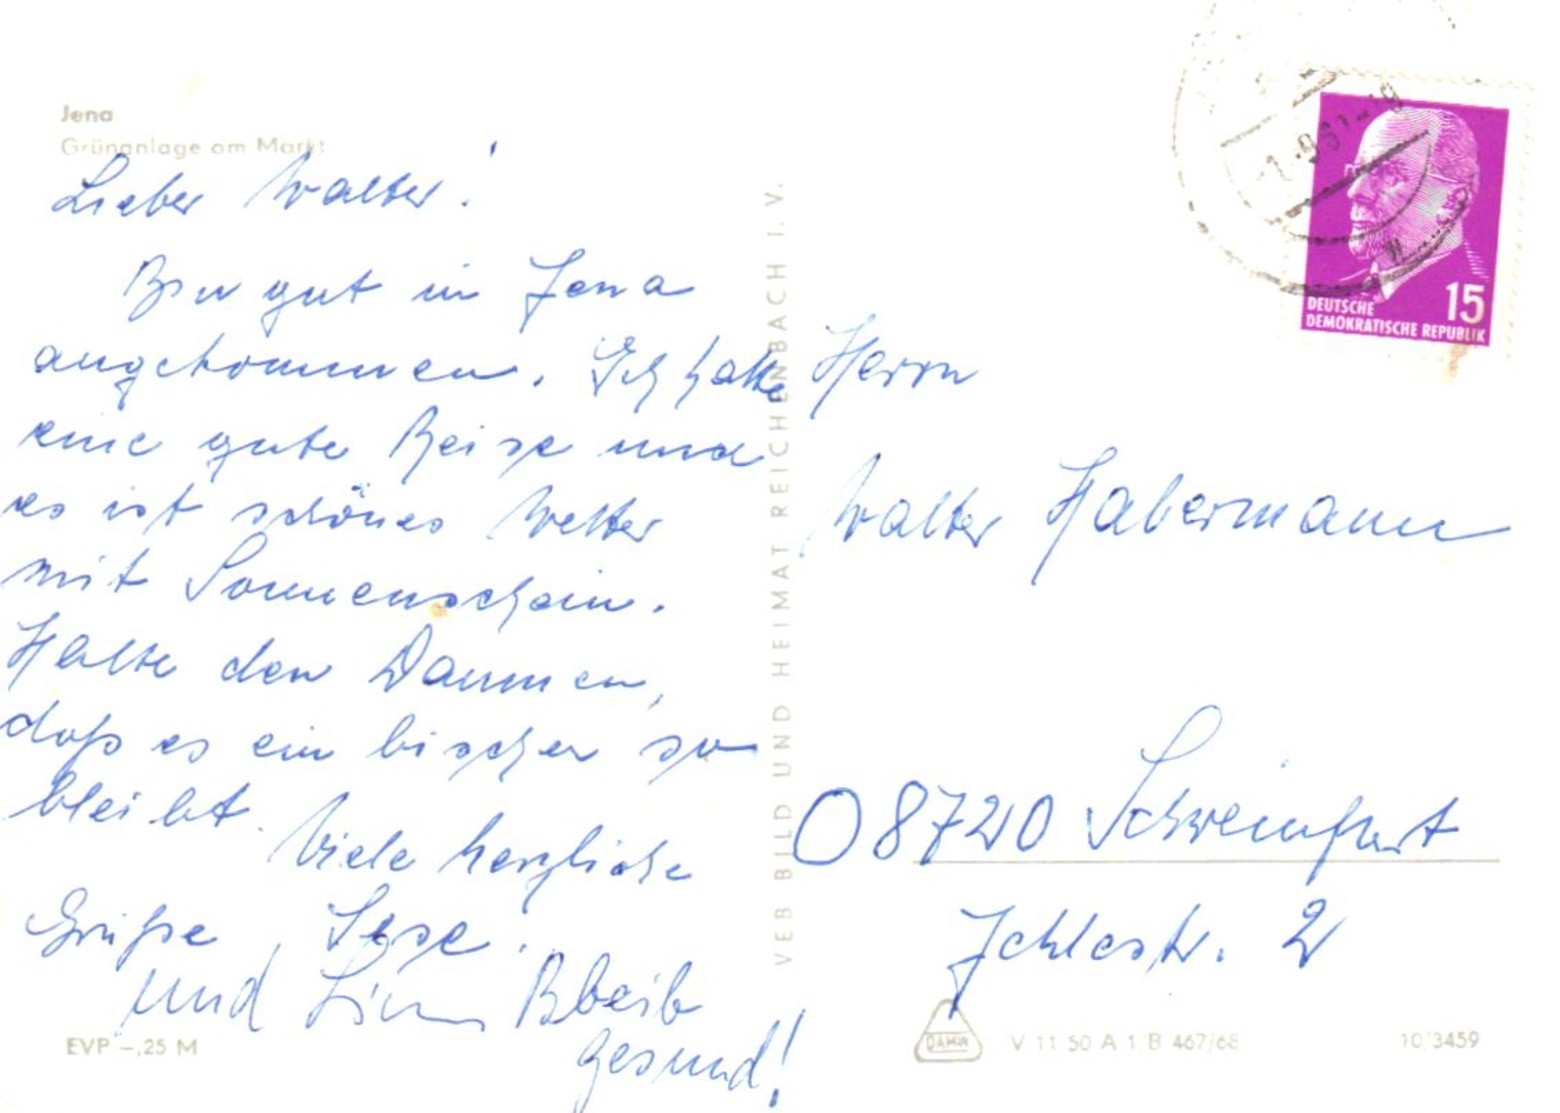 Jena
Grünanlage am Markt
Lieber Walter!
Bin gut in Jena
angekommen. Ich hatte
eine gute Reise und
es ist schönes Wetter
mit Sonnenschein.
Halte den Daumen,
daß es ein bischen so
bleibt. Viele herzliche
Grüße,
und Bleib
gesund!
EVP –,25 M
VEB BILD UND HEIMAT REICHENBACH I. V.
DEUTSCHE
DEMOKRATISCHE REPUBLIK
15
Herrn
Walter Habermann
O 8720 Schweinfurt
2
DAMW
V 11 50 A 1/B 467/68
10/3459